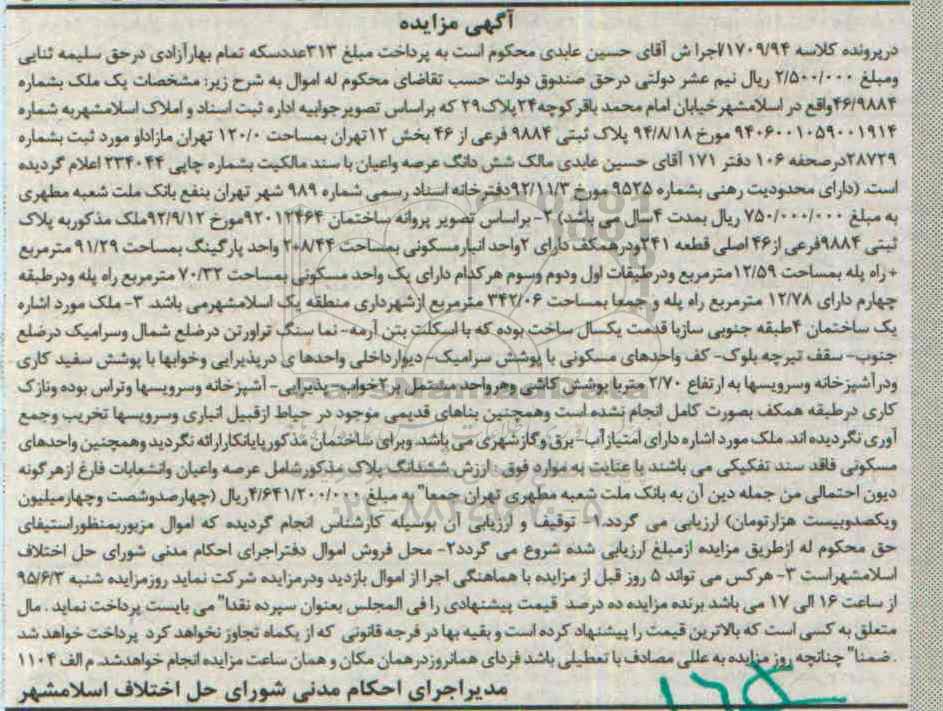 آگهی مزایده
درپرونده کلاسه ۱۷۰۹/۹۴/اجرا ش آقای حسین عابدی محکوم است به پرداخت مبلغ ۳۱۳عددسکه تمام بهارآزادی درحق سلیمه ثنایی
ومبلغ ۲/۵۰۰/۰۰۰ ریال نیم عشر دولتی درحق صندوق دولت حسب تقاضای محکوم له اموال به شرح زیر: مشخصات یک ملک بشماره
۴۶/۹۸۸۴واقع در اسلامشهرخیابان امام محمد باقرکوچه۲۴پلاک۲۹ که براساس تصویرجوابیه اداره ثبت اسناد و املاک اسلامشهربه شماره
۹۴۰۶۰۰۱۰۵۹۰۰۱۹۱۴ مورخ ۹۴/۸/۱۸ پلاک ثبتی ۹۸۸۴ فرعی از ۴۶ بخش ۱۲تهران بمساحت ۱۲۰/۰ تهران مازاداو مورد ثبت بشماره
۲۸۷۲۹درصحفه ۱۰۶ دفتر ۱۷۱ آقای حسین عابدی مالک شش دانگ عرصه واعیان با سند مالکیت بشماره چاپی ۲۳۴۰۴۴ اعلام گردیده
است. (دارای محدودیت رهنی بشماره ۹۵۲۵ مورخ ۹۲/۱۱/۳دفترخانه اسناد رسمی شماره ۹۸۹ شهر تهران بنفع بانک ملت شعبه مطهری
به مبلغ ۷۵۰/۰۰۰/۰۰۰ ریال بمدت ۴سال می باشد) ۲- براساس تصویر پروانه ساختمان ۹۲۰۱۲۴۶۴مورخ ۹۲/۹/۱۲ملک مذکوربه پلاک
ثبتی ۹۸۸۴فرعی از۴۶ اصلی قطعه ۲۴۱ودرهمکف دارای ۲واحد انبارمسکونی بمساحت ۲۰۸/۴۴ واحد پارگینگ بمساحت ۹۱/۲۹ مترمربع
+راه پله بمساحت ۱۲/۵۹مترمربع ودرطبقات اول ودوم وسوم هرکدام دارای یک واحد مسکونی بمساحت ۷۰/۳۲ مترمربع راه پله ودرطبقه
چهارم دارای ۱۲/۷۸ مترمربع راه پله و جمعا بمساحت ۳۴۲/۰۶ مترمربع ازشهرداری منطقه یک اسلامشهرمی باشد. ۳- ملک مورد اشاره
یک ساختمان ۴طبقه جنوبی سازبا قدمت یکسال ساخت بوده که با اسکلت بتن آرمه- نما سنگ تراورتن درضلع شمال وسرامیک درضلع
جنوب- سقف تیرچه بلوک- کف واحدهای مسکونی با پوشش سرامیک- دیوارداخلی واحدها ی درپذیرایی وخوابها با پوشش سفید کاری
ودرآشپزخانه وسرویسها به ارتفاع ۲/۷۰ متربا پوشش کاشی وهرواحد مشتمل بر۲خواب- پذیرایی- آشپزخانه وسرویسها وتراس بوده ونازک
کاری درطبقه همکف بصورت کامل انجام نشده است وهمچنین بناهای قدیمی موجود در حیاط ازقبیل انباری وسرویسها تخریب وجمع
آوری نگردیده اند. ملک مورد اشاره دارای امتیازآب- برق وگازشهری می باشد. وبرای ساختمان مذکورپایانکارارائه نگردید وهمچنین واحدهای
مسکونی فاقد سند تفکیکی می باشند با عنایت به موارد فوق ارزش ششدانگ پلاک مذکورشامل عرصه واعیان وانشعابات فارغ ازهرگونه
دیون احتمالی من جمله دین آن به بانک ملت شعبه مطهری تهران جمعا" به مبلغ ۴/۶۴۱/۲۰۰/۰۰۰ریال (چهارصدوشصت وچهارمیلیون
ویکصدوبیست هزارتومان) ارزیابی می گردد.۱- توقیف و ارزیابی آن بوسیله کارشناس انجام گردیده که اموال مزبوربمنظوراستیفای
حق محکوم له ازطریق مزایده ازمبلغ ارزیابی شده شروع می گردد۲- محل فروش اموال دفتراجرای احکام مدنی شورای حل اختلاف
اسلامشهراست ۳- هرکس می تواند ۵ روز قبل از مزایده با هماهنگی اجرا از اموال بازدید ودرمزایده شرکت نماید روزمزایده شنبه ۹۵/۶/۳
از ساعت ۱۶ الی ۱۷ می باشد برنده مزایده ده درصد قیمت پیشنهادی را فی المجلس بعنوان سپرده نقدا" می بایست پرداخت نماید . مال
متعلق به کسی است که بالاترین قیمت را پیشنهاد کرده است و بقیه بها در فرجه قانونی که از یکماه تجاوز نخواهد کرد پرداخت خواهد شد
. ضمنا" چنانچه روز مزایده به عللی مصادف با تعطیلی باشد فردای همانروزدرهمان مکان و همان ساعت مزایده انجام خواهدشد. م الف ۱۱۰۴
مدیراجرای احکام مدنی شورای حل اختلاف اسلامشهر